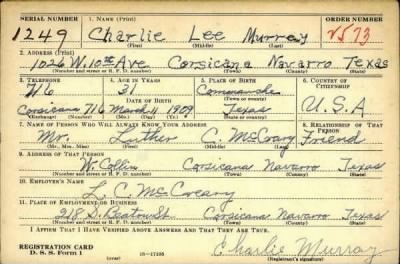 SERIAL NUMBER 1. NAME (Print) ORDER NUMBER
1249 Charlie Lee Murray V573
(First) (Middle) (Last)
2. ADDRESS (Print)
1026 W. 10th Ave Corsicana Navarro Texas
(Number and street or R. F. D. number) (Town) (County) (State)
3. TELEPHONE 4. AGE IN YEARS 5. PLACE OF BIRTH 6. COUNTRY OF CITIZENSHIP
716 31 Comanche
DATE OF BIRTH (Town or county)
Corsicana 716 March 11, 1909 Texas U.S.A
(Exchange) (Number) (Mo.) (Day) (Yr.) (State or country)
7. NAME OF PERSON WHO WILL ALWAYS KNOW YOUR ADDRESS 8. RELATIONSHIP OF THAT PERSON
Mr. Luther C. McCrary Friend
(Mr., Mrs., Miss) (First) (Middle) (Last)
9. ADDRESS OF THAT PERSON
W. Collin Corsicana Navarro Texas
(Number and street or R. F. D. number) (Town) (County) (State)
10. EMPLOYER'S NAME
L. C. McCreary
11. PLACE OF EMPLOYMENT OR BUSINESS
218 S. Beaton St Corsicana Navarro Texas
(Number and street or R. F. D. number) (Town) (County) (State)
I AFFIRM THAT I HAVE VERIFIED ABOVE ANSWERS AND THAT THEY ARE TRUE.
REGISTRATION CARD
D. S. S. Form 1 (over) 16—17105 Charlie Murray